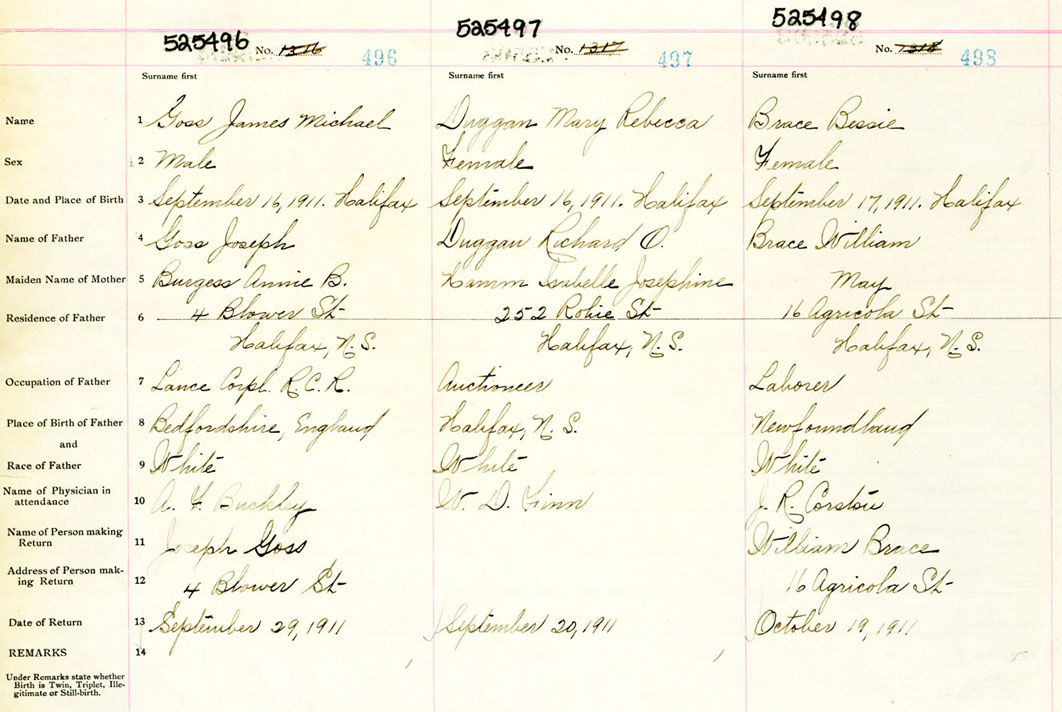 525496 No. 1316 496 525497 No. 1317 497 525498 No. 1318 498
Surname first Surname first Surname first
Name 1 Goss James Michael Duggan Mary Rebecca Brace Bessie
Sex 2 Male Female Female
Date and Place of Birth 3 September 16, 1911. Halifax September 16, 1911. Halifax September 17, 1911. Halifax
Name of Father 4 Goss Joseph Duggan Richard O. Brace William
Maiden Name of Mother 5 Burgess Annie B. Hamm Isabelle Josephine May
Residence of Father 6 4 Blower St 252 Robie St 16 Agricola St
Halifax, N.S. Halifax, N.S. Halifax, N.S.
Occupation of Father 7 Lance Corpl. R.C.R. Auctioneer Laborer
Place of Birth of Father 8 Bedfordshire, England Halifax, N.S. Newfoundland
and
Race of Father 9 White White White
Name of Physician in
attendance 10 A. F. Buckley W. D. Finn J. R. Corston
Name of Person making
Return 11 Joseph Goss William Brace
Address of Person mak-
ing Return 12 4 Blower St 16 Agricola St
Date of Return 13 September 29, 1911 September 20, 1911 October 19, 1911
REMARKS 14
Under Remarks state whether
Birth is Twin, Triplet, Ille-
gitimate or Still-birth.